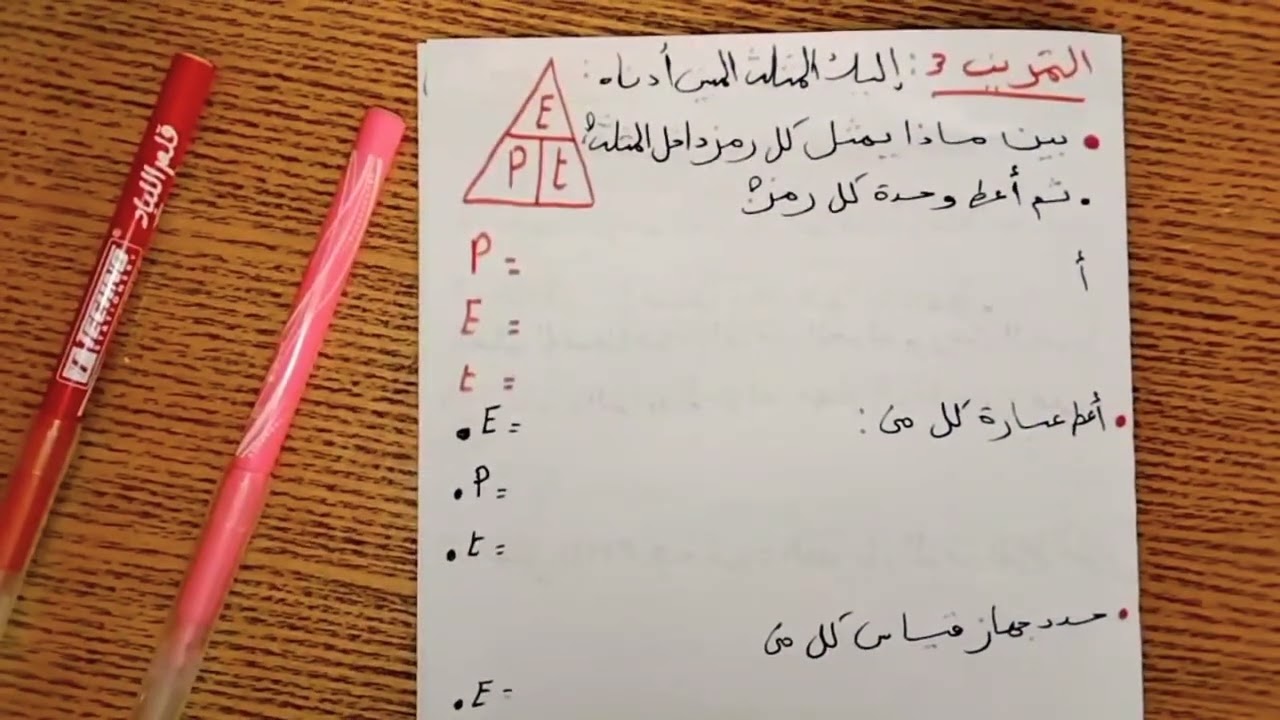 التمرين 3 : إليك المثلث المبين أدناه :
E
P t
• بين ماذا يمثل كل رمز داخل المثلث؟
• ثم أعط وحدة كل رمز؟
P =
أ
E =
t =
• أعط عبارة كل من :
• E =
• P =
• t =
• حدد جهاز قياس كل من
• E =
قلم اللباد
TECHNO
STATIONERY